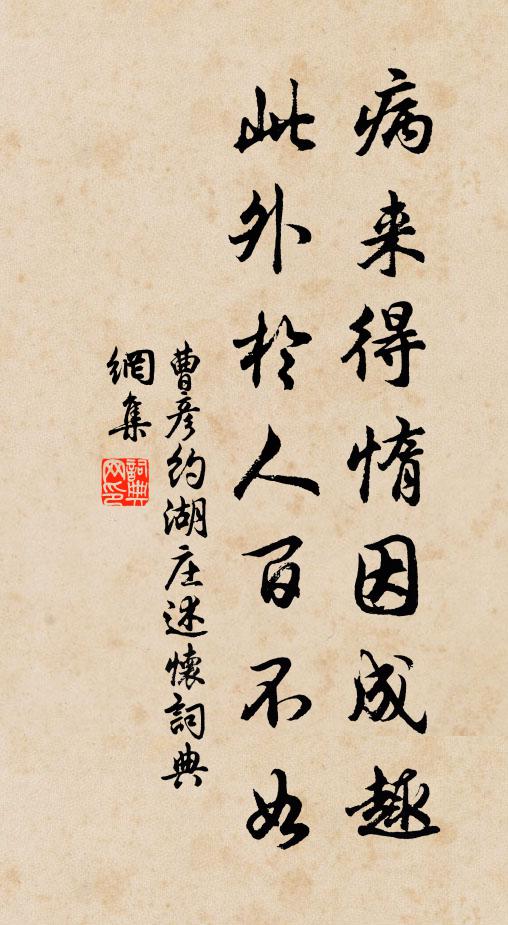 病来得惰因成趣
此外於人百不如
曹彦约湖庄述懷詞典
網集
詞典
网印